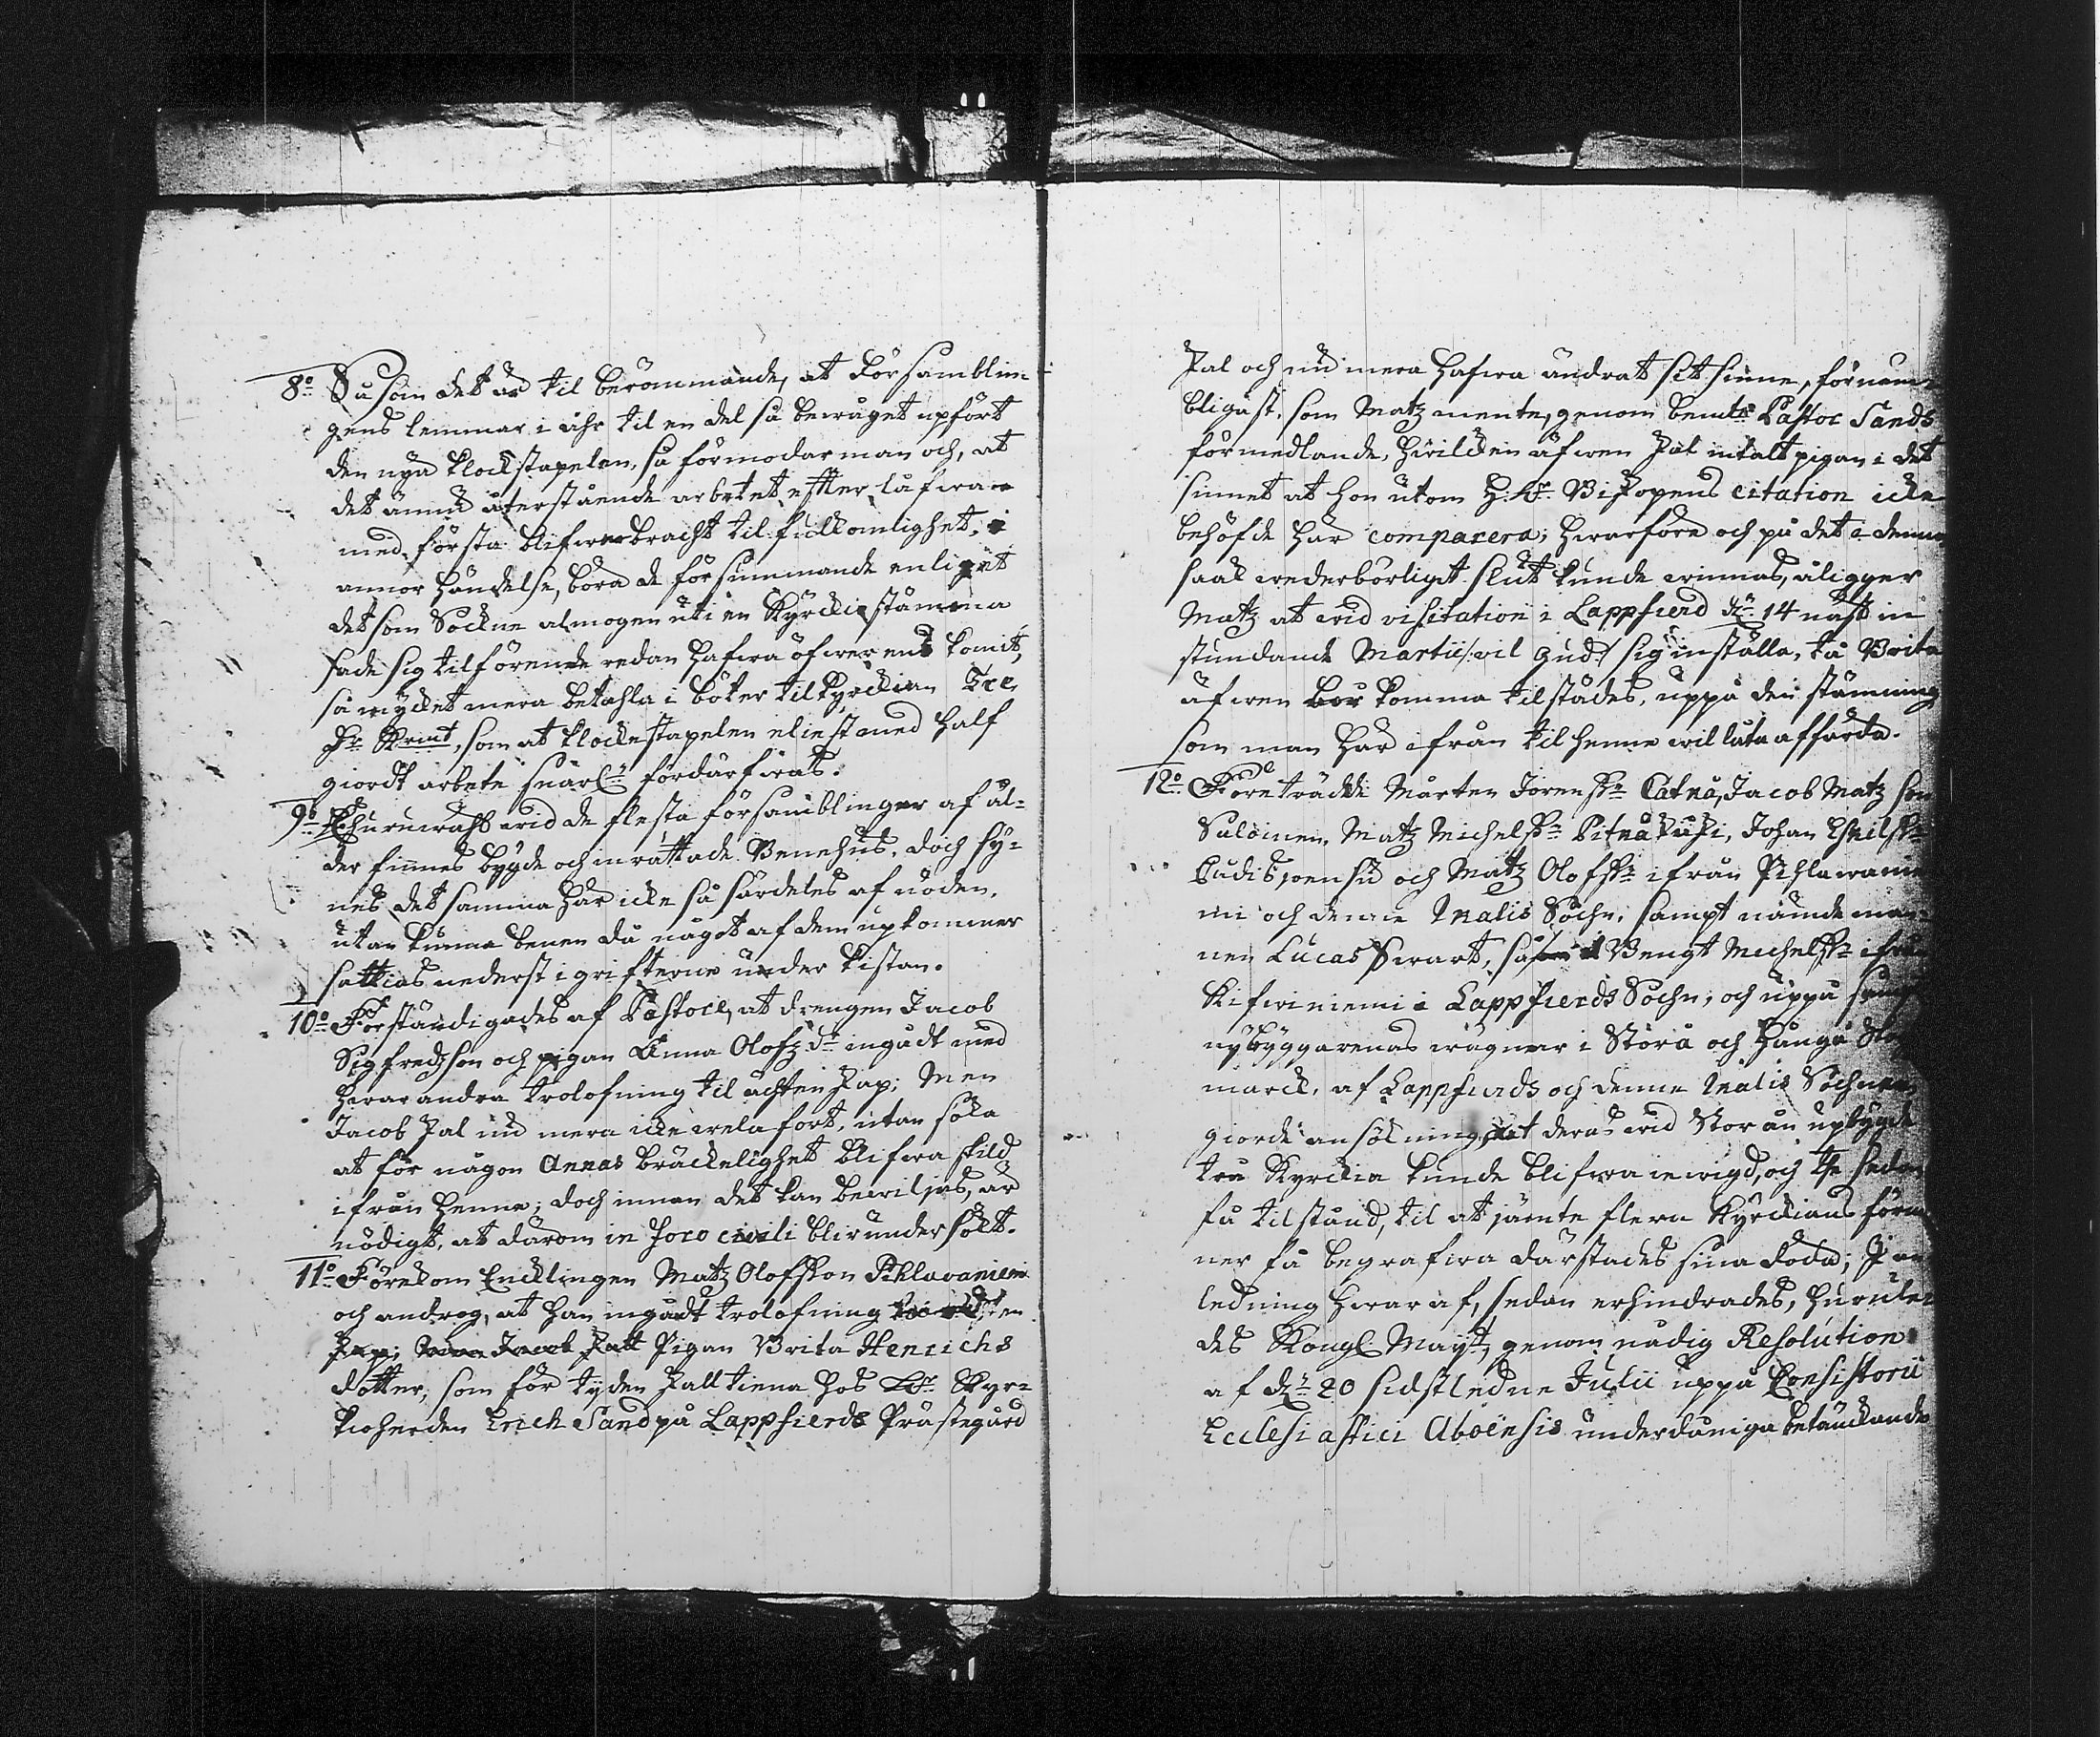 8:o Såsom det är til berömmande, at församblin-
gens lemmar i åhr til en del så bewäget upfört
den nya klockstapelen, så förmodar man och, at
det ännu återstående arbetet efter lufwan
med första blifwer bracht til fullkomlighet, i
annor händelse, böra de försummande enligit
det som Sockne almogen uti en Kyrckiostämma
sade sig tilförende redan hafwa öfwer ens komit,
så mycket mera betahla i böter til Kyrckian Tre
Kmt, som at klockestapelen eliest med half
giordt arbete snarl:n fördärfwas.
9:o Ehuruwähl wid de flesta församblingar af äl-
der finnes bygde och inrättade Benehus, doch sy-
nes det samma här icke så särdeles af nöden,
utan kunna benen då något af dem upkommer
sättias nederst i grifterne under kistan.
10:o Förständigades af Pastore, at drengen Jacob
Sigfredzson och pigan Anna Olofz dr ingådt med
hwar andra trolofning til ächtenskap; Men
Jacob skal nu mera icke wela fort, utan söka
at för någon Annas bräckelighet blifwa skild
ifrån henne; doch innan det kan bewiljas, är
nödigt, at därom in foro civili blir undersökt.
11:o Förekom Encklingen Matz Olofsson Pihlavaniemi
och androg, at han ingådt trolofning
Pigan Brita Henrichs
dotter, som för tyden skall tiena hos H:r Kyr-
kioherden Erich Sand på Lappfierds Prästegård
skal och nu mera hafwa ändrat sit sinne, förnem-
bligast, som Matz mente, genom bem:te Pastor Sands
förmedlande, hwilcken äfwen skal intalt pigan i det
sinnet at hon utom H. Hr. Biskopens citation icke
behöfde här comparera; Hwarföre och på det i denna
saak wederbörligit slut kunde winnas, åligger
Matz at wid visitation i Lappfierd d:n 14 näst in
stundande Martii /:wil Gud:/ sig inställa, då Brita
äfwen bör komma tilstädes, uppå den stämning
som man här ifrån til henne wil låta affärda.
12:o Förträdde Mårten Jörenss:n Catna, Jacob Matz son
Saloinen, Matz Michelss:n Pitkäkäski, Johan Eskilss:n
Ludisjoensu och Matz Olofss:n ifrån Pihlawanie
mi och denne Inalis Sochn, sampt nämde man-
nen Lucas Swart, Bengt Michelss:n ifrån
Kifwiniemi i Lappfierds Sochn, och uppå
nybyggarenas wägnar i Storå och Hångå
marck, af Lappfierds och denne Inalis Sochnar,
giorde ansökning, at deras wid Storån upbygde
trä Kyrckia kunde blifwa inwigd, och the sedan
få tilstånd, til at jämte flera Kyrckians förmå
ner få begrafwa därstädes sina döda; I an
ledning hwaraf, sedan erhindrades, hurule
des Kongl. May:t, genom nådig Resolution
af d:n 20 sidstledne Julii uppå Consistorii
Ecclesiastici Aboënsis underdåniga betänckande